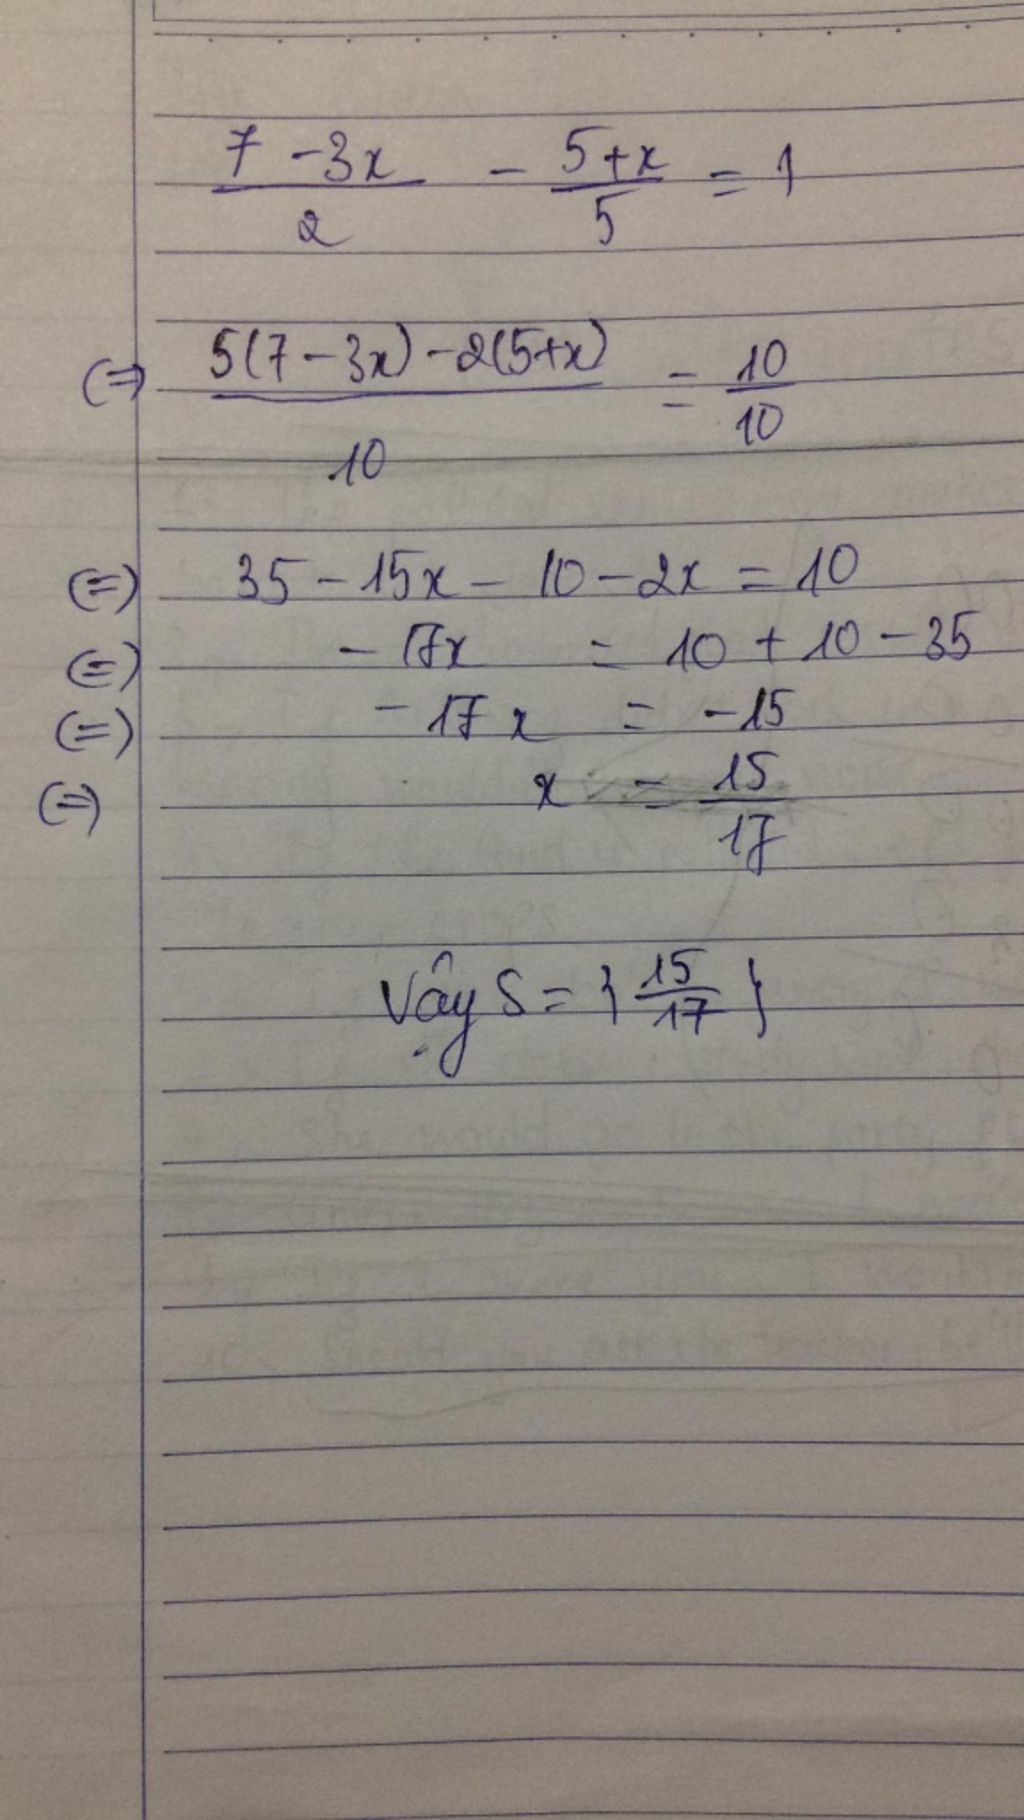 7 - 3x / 2 - 5+x / 5 = 1
(=) 5(7 - 3x) - 2(5+x) / 10 = 10 / 10
(=) 35 - 15x - 10 - 2x = 10
(=) - 17x = 10 + 10 - 35
(=) - 17x = -15
(=) x = 15 / 17
Vậy S = { 15 / 17 }